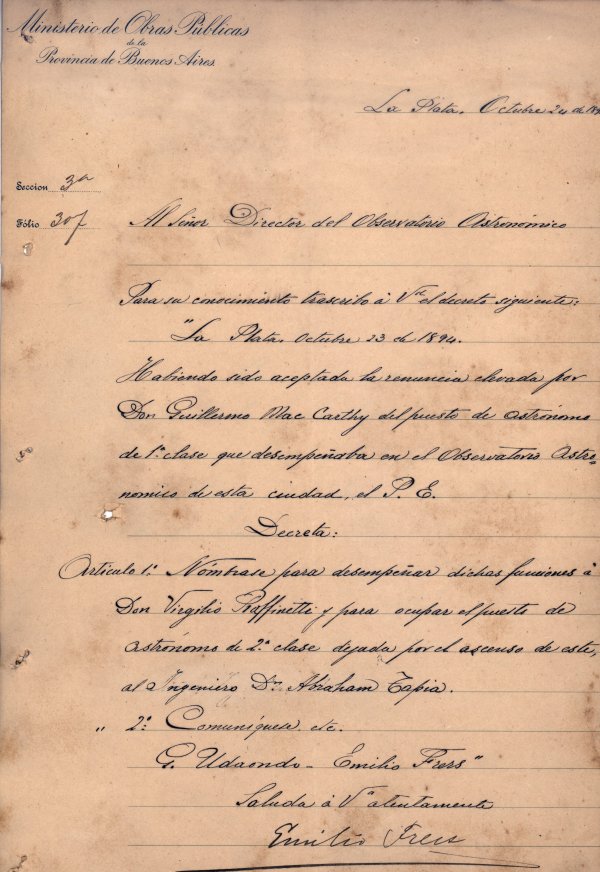 Ministerio de Obras Públicas
de la
Provincia de Buenos Aires.
La Plata, Octubre 24 de 189
Seccion 3ª
Fólio 307
Al Señor Director del Observatorio Astronómico
Para su conocimiento trascribo á Vd el decreto siguiente:
"La Plata, Octubre 23 de 1894.
Habiendo sido aceptada la renuncia elevada por
Don Guillermo Mac Carthy del puesto de astrónomo
de 1ª clase que desempeñaba en el Observatorio Astro-
nomico de esta ciudad, el P. E.
Decreta:
Articulo 1º Nómbrase para desempeñar dichas funciones á
Don Virgilio Raffinetti y para ocupar el puesto de
astrónomo de 2ª clase dejada por el ascenso de este,
al Ingeniero Dn Abraham Tapia.
" 2º Comuníquese etc.
G. Udaondo - Emilio Frers"
Saluda á Vd atentamente
Emilio Frers